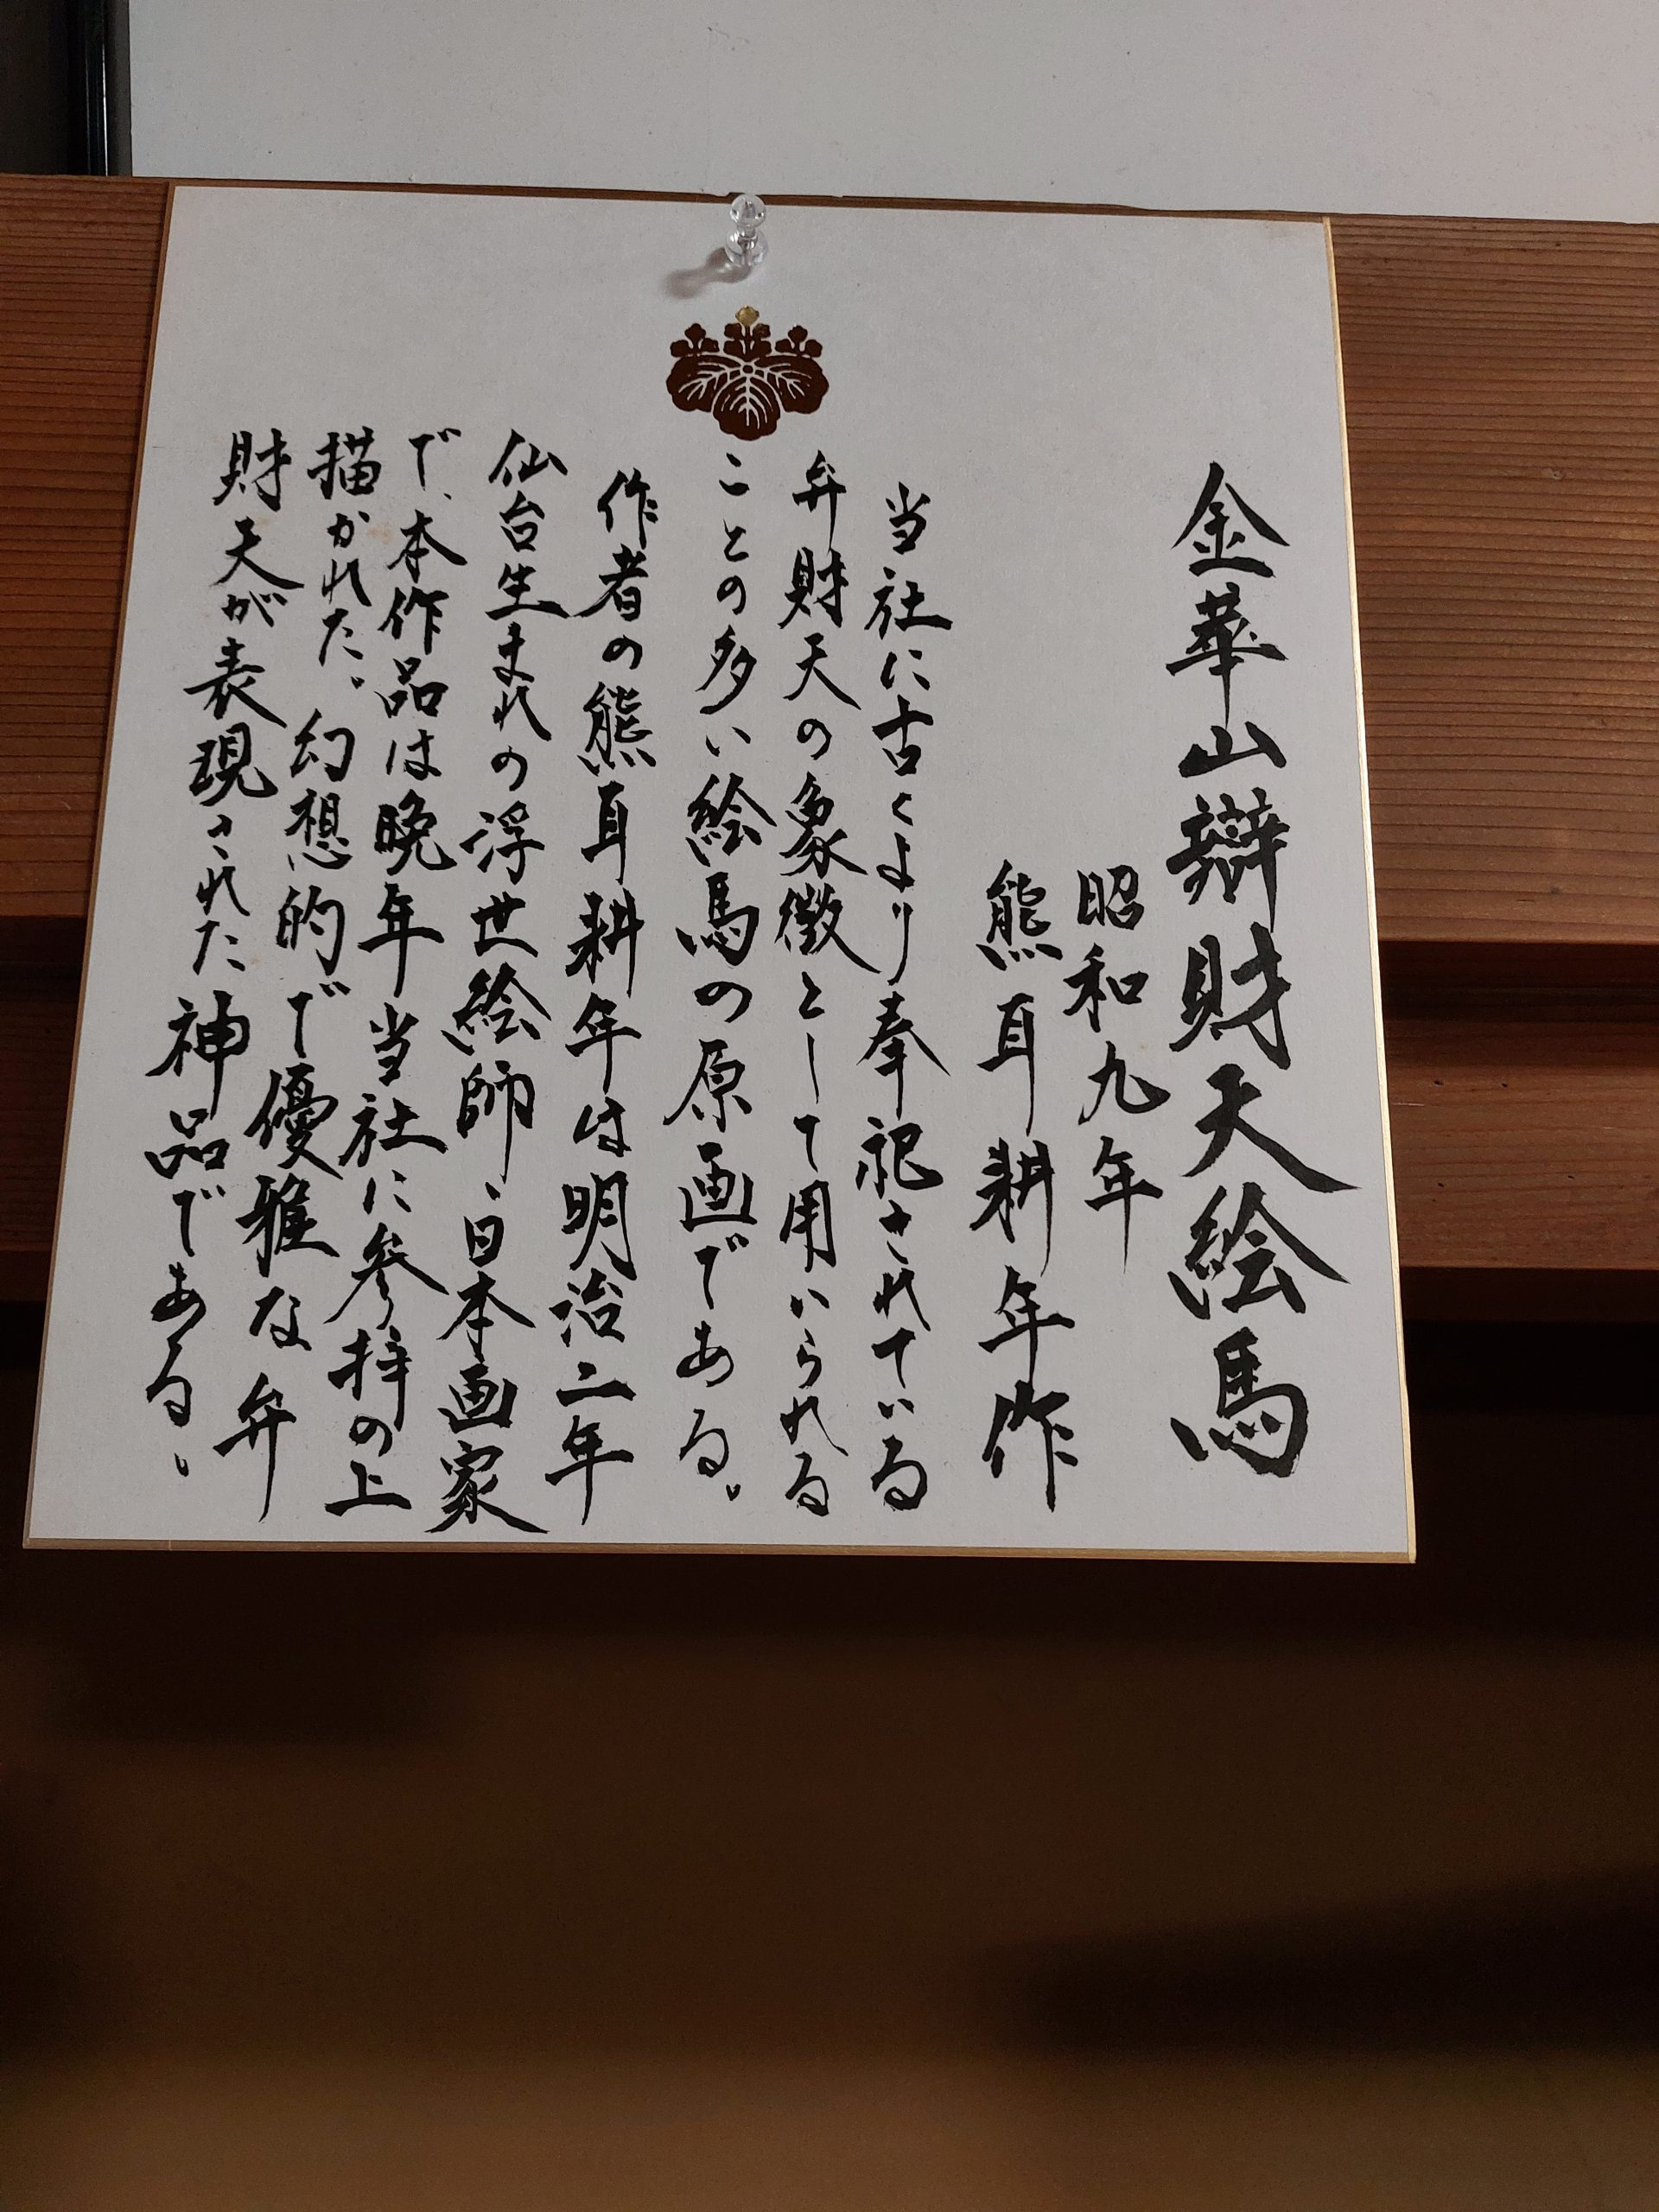 金華山辯財天絵馬
昭和九年
熊耳耕年作
当社に古くより奉祀されている
弁財天の象徴として用いられる
ことの多い絵馬の原画である。
作者の熊耳耕年は明治二年
仙台生まれの浮世絵師、日本画家
で、本作品は晩年当社に参拝の上
描かれた。幻想的で優雅な弁
財天が表現された神品である。